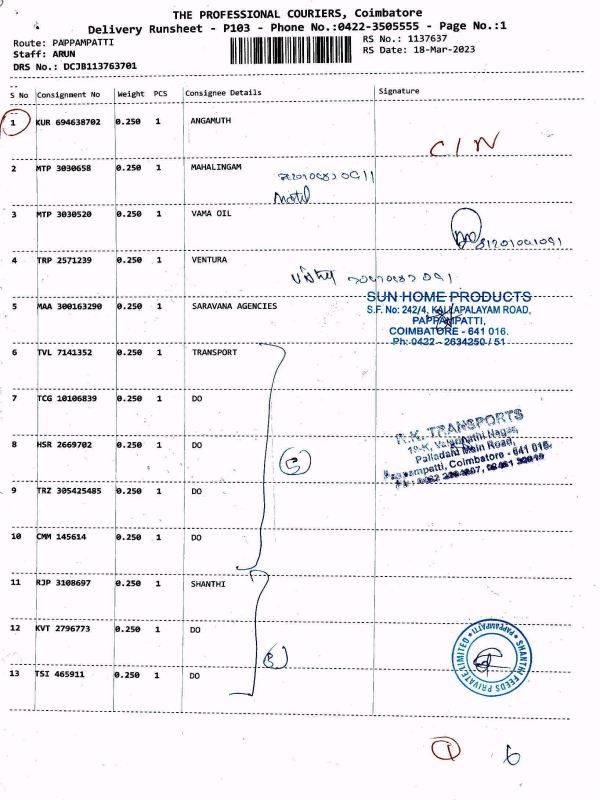 THE PROFESSIONAL COURIERS, Coimbatore
Delivery Runsheet - P103 - Phone No.:0422-3505555 - Page No.:1
Route: PAPPAMPATTI
RS No.: 1137637
Staff: ARUN
RS Date: 18-Mar-2023
DRS No.: DCJB113763701
S No Consignment No Weight PCS Consignee Details Signature
1 KUR 694638702 0.250 1 ANGAMUTH
C/N
2 MTP 3030658 0.250 1 MAHALINGAM
3 MTP 3030520 0.250 1 VAMA OIL
4 TRP 2571239 0.250 1 VENTURA
5 MAA 300163290 0.250 1 SARAVANA AGENCIES
SUN HOME PRODUCTS
S.F. No: 242/4, KALLAPALAYAM ROAD,
PAPPAMPATTI,
COIMBATORE - 641 016.
Ph: 0422 - 2634250 / 51
6 TVL 7141352 0.250 1 TRANSPORT
7 TCG 10106839 0.250 1 DO
R.K. TRANSPORTS
Nagar,
Palladam Main Road,
Pappampatti, Coimbatore - 641 016.
8 HSR 2669702 0.250 1 DO
5
9 TRZ 305425485 0.250 1 DO
10 CMM 145614 0.250 1 DO
11 RJP 3108697 0.250 1 SHANTHI
12 KVT 2796773 0.250 1 DO
3
SHANTHI FEEDS PRIVATE LIMITED
PAPPAMPATTI
13 TSI 465911 0.250 1 DO
1 6